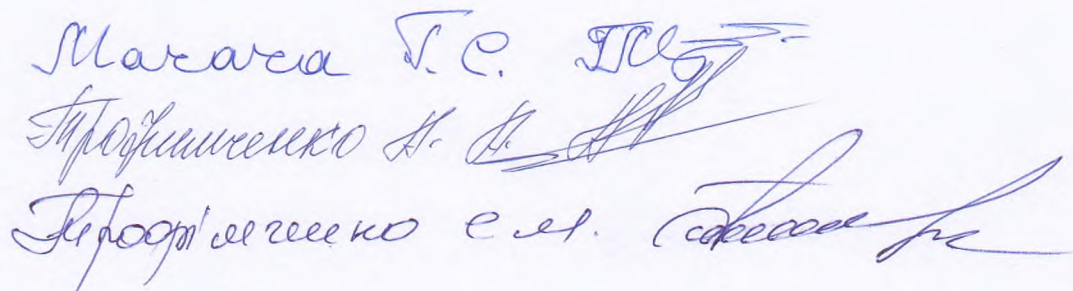 Мачача Г. С.
Трофимченко Н. Н.
Трофімченко Є. М.